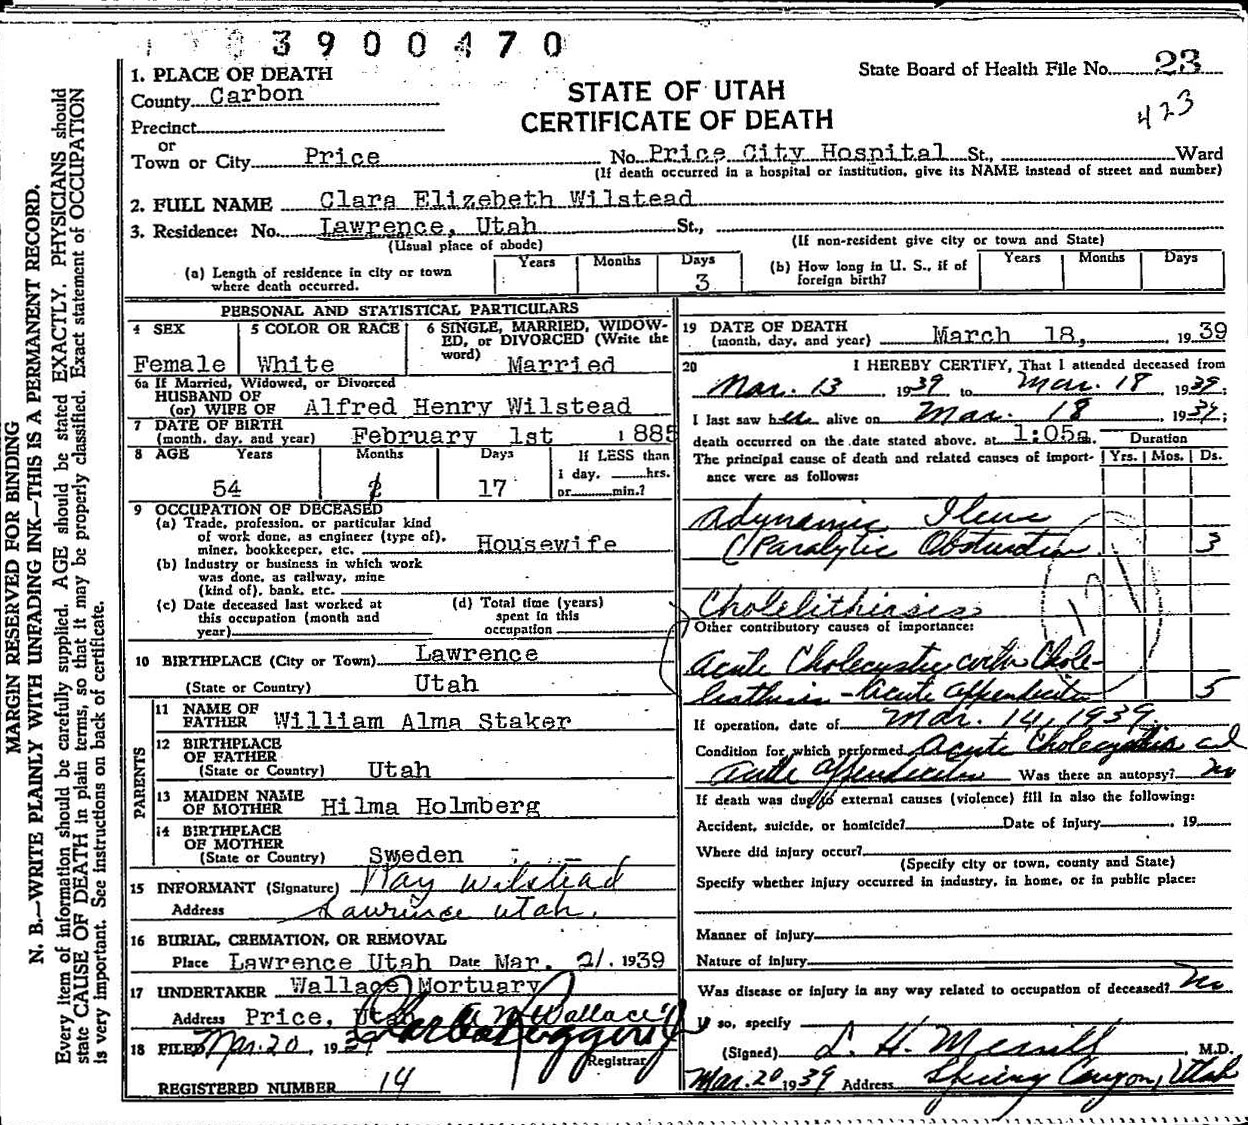 3900470
State Board of Health File No. 23
423
STATE OF UTAH
CERTIFICATE OF DEATH
1. PLACE OF DEATH
County Carbon
Precinct
or
Town or City Price No. Price City Hospital St., Ward
(If death occurred in a hospital or institution, give its NAME instead of street and number)
2. FULL NAME Clara Elizebeth Wilstead
3. Residence: No. Lawrence, Utah St.,
(Usual place of abode) (If non-resident give city or town and State)
(a) Length of residence in city or town where death occurred. Years Months Days 3
(b) How long in U. S., if of foreign birth? Years Months Days
PERSONAL AND STATISTICAL PARTICULARS
4 SEX Female
5 COLOR OR RACE White
6 SINGLE, MARRIED, WIDOWED, or DIVORCED (Write the word) Married
6a If Married, Widowed, or Divorced
HUSBAND OF
(or) WIFE OF Alfred Henry Wilstead
7 DATE OF BIRTH
(month, day, and year) February 1st 1885
8 AGE Years 54 Months Days 17 If LESS than 1 day, hrs. or min.?
9 OCCUPATION OF DECEASED
(a) Trade, profession, or particular kind
of work done, as engineer (type of),
miner, bookkeeper, etc. Housewife
(b) Industry or business in which work
was done, as railway, mine
(kind of), bank, etc.
(c) Date deceased last worked at
this occupation (month and
year)
(d) Total time (years)
spent in this
occupation
10 BIRTHPLACE (City or Town) Lawrence
(State or Country) Utah
PARENTS
11 NAME OF
FATHER William Alma Staker
12 BIRTHPLACE
OF FATHER
(State or Country) Utah
13 MAIDEN NAME
OF MOTHER Hilma Holmberg
14 BIRTHPLACE
OF MOTHER
(State or Country) Sweden
15 INFORMANT (Signature) Ray Wilstead
Address Lawrence Utah.
16 BURIAL, CREMATION, OR REMOVAL
Place Lawrence Utah Date Mar. 21, 1939
17 UNDERTAKER Wallace Mortuary
Address Price, Utah Wallace
18 FILED Mar. 20, 1939
Registrar
REGISTERED NUMBER 14
19 DATE OF DEATH
(month, day, and year) March 18, , 1939
20 I HEREBY CERTIFY, That I attended deceased from
Mar. 13 1939 to Mar. 18 1939;
I last saw her alive on Mar. 18, 1939;
death occurred on the date stated above, at 1:05a. Duration
The principal cause of death and related causes of importance were as follows: Yrs. Mos. Ds.
Adynamic Ileus
(Paralytic Obstruction 3
Cholelithiasis
Other contributory causes of importance:
Acute Cholecystic with Chole-
lithiasis - Acute appendicitis 5
If operation, date of Mar. 14, 1939
Condition for which performed Acute Cholecystitis
acute appendicitis Was there an autopsy? no
If death was due to external causes (violence) fill in also the following:
Accident, suicide, or homicide? Date of injury , 19
Where did injury occur?
(Specify city or town, county and State)
Specify whether injury occurred in industry, in home, or in public place:
Manner of injury
Nature of injury
Was disease or injury in any way related to occupation of deceased? No
If so, specify
(Signed) L. H. Merrill , M.D.
Mar. 20 1939 Address Spring Canyon, Utah
MARGIN RESERVED FOR BINDING
N. B.—WRITE PLAINLY WITH UNFADING INK—THIS IS A PERMANENT RECORD.
Every item of information should be carefully supplied. AGE should be stated EXACTLY. PHYSICIANS should
state CAUSE OF DEATH in plain terms, so that it may be properly classified. Exact statement of OCCUPATION
is very important. See instructions on back of certificate.